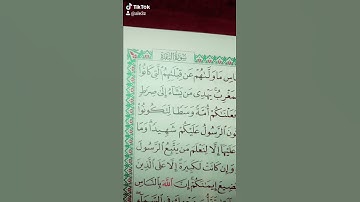 TikTok
سورة البقرة
مَا وَلَّىٰهُمْ عَن قِبْلَتِهِمُ الَّتِي كَانُوا
يَهْدِي مَن يَشَاءُ إِلَىٰ صِرَٰطٍ
جَعَلْنَٰكُمْ أُمَّةً وَسَطًا لِّتَكُونُوا
الرَّسُولُ عَلَيْكُمْ شَهِيدًا وَمَا
عَلَيْهَا إِلَّا لِنَعْلَمَ مَن يَتَّبِعُ الرَّسُولَ
وَإِن كَانَتْ لَكَبِيرَةً إِلَّا عَلَى الَّذِينَ
إِيمَٰنَكُمْ إِنَّ اللَّهَ بِالنَّاسِ